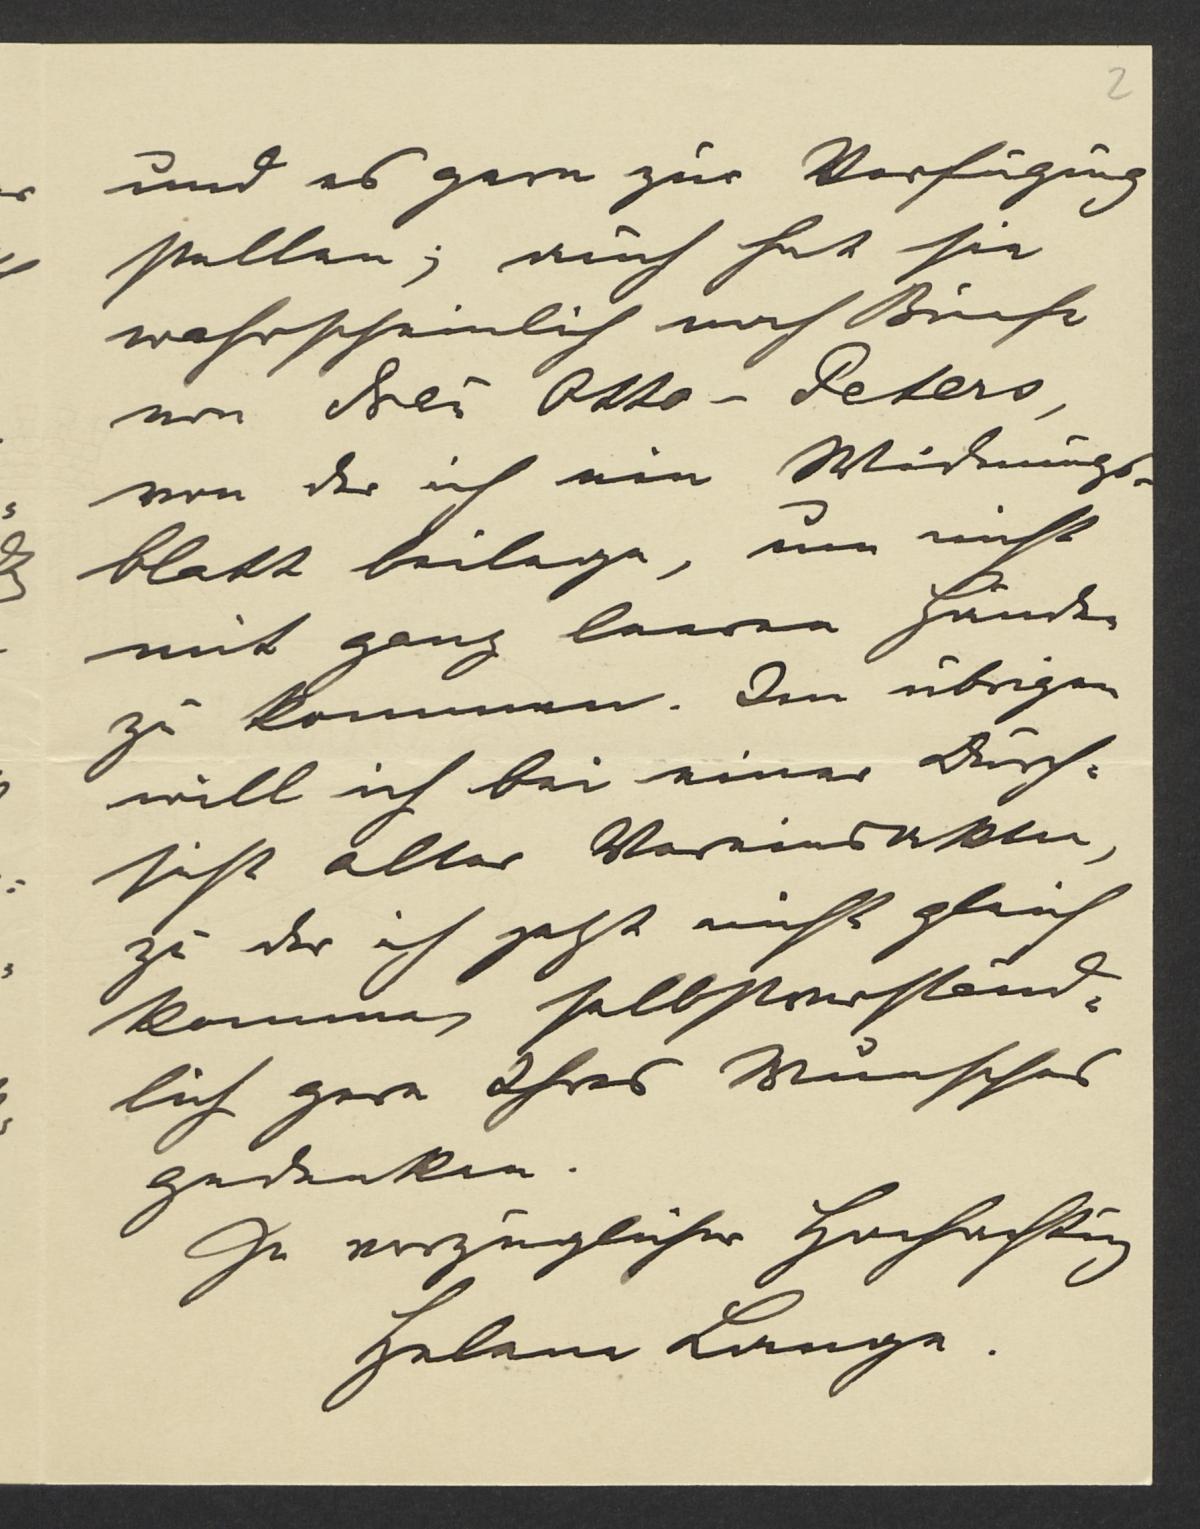 2
und es gern zur Verfügung
stellen; auch hat sie
wahrscheinlich noch Briefe
von Frau Otto-Peters,
von der ich ein Widmungs-
blatt beilege, um nicht
mit ganz leeren Händen
zu kommen. Im übrigen
will ich bei einer Durch-
sicht alter Vereinsakten,
zu der ich jetzt nicht gleich
komme, selbstverständ-
lich gern Ihres Wunsches
gedenken.
In vorzüglicher Hochachtung
Helene Lange.